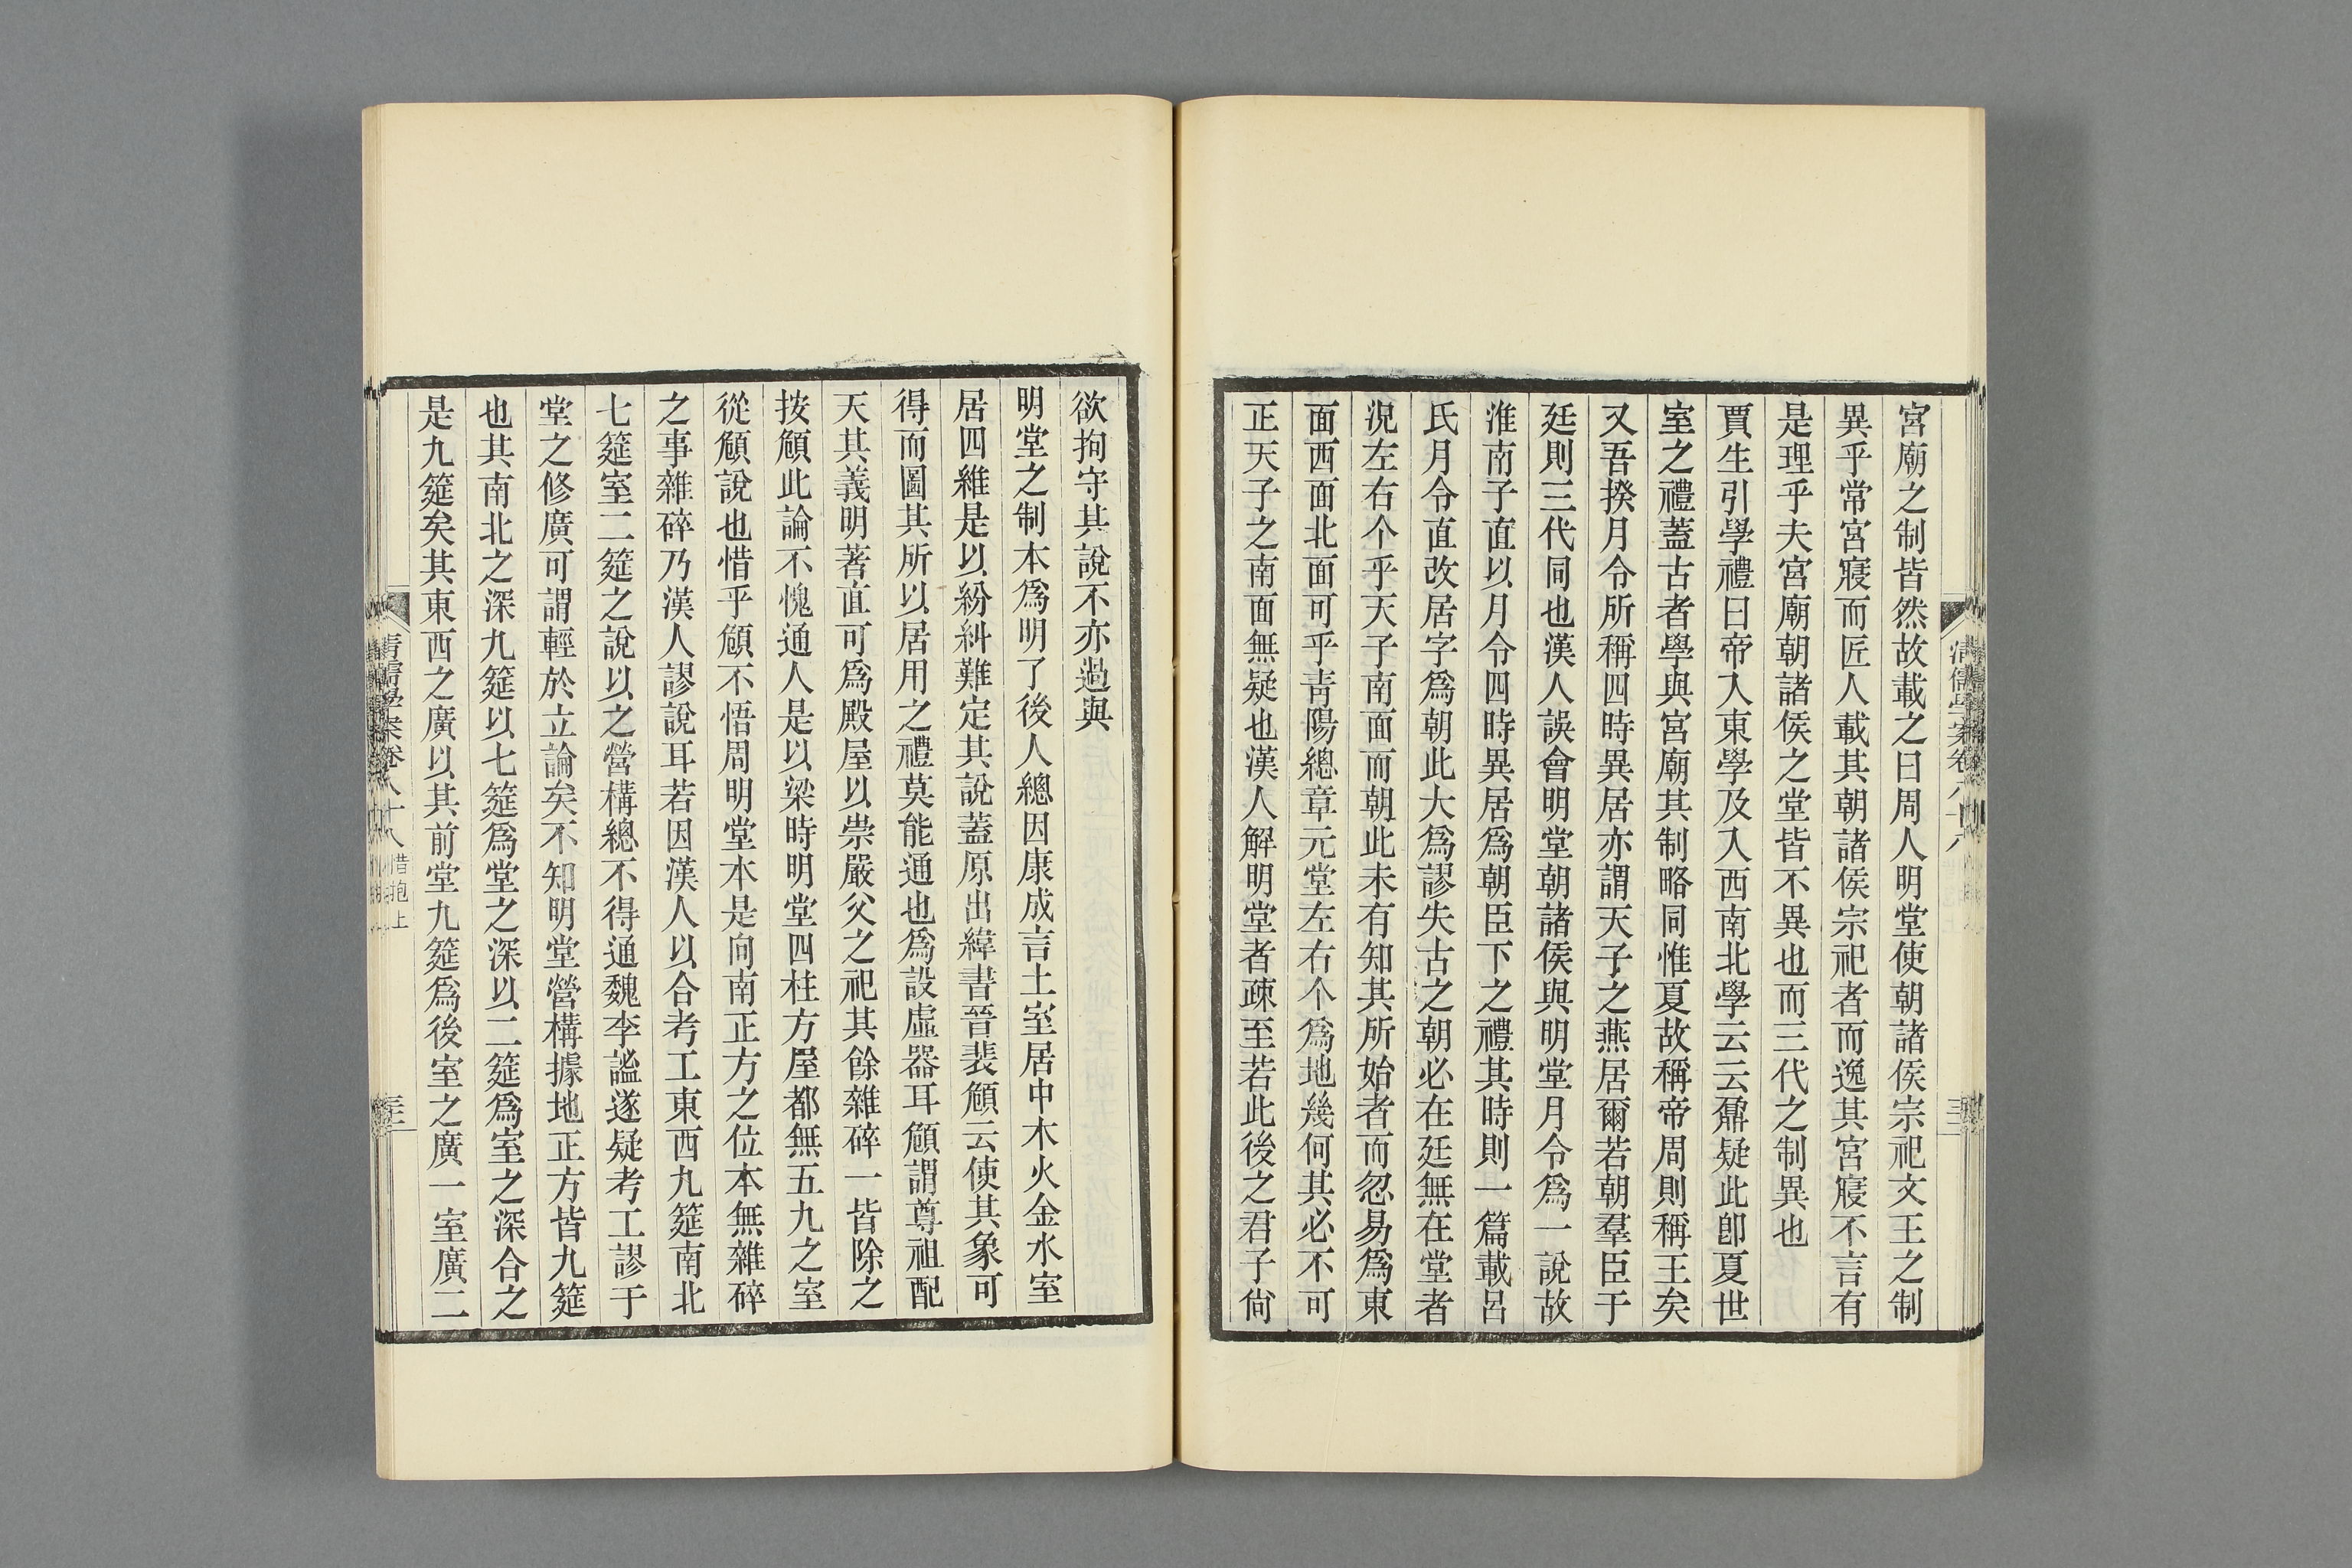 宮廟之制皆然故載之曰周人明堂使朝諸侯宗祀文王之制
異乎常宮寢而匠人載其朝諸侯宗祀者而逸其宮寢不言有
是理乎夫宮廟朝諸侯之堂皆不異也而三代之制異也
賈生引學禮曰帝入東學及入西南北學云云鼐疑此卽夏世
室之禮蓋古者學與宮廟其制略同惟夏故稱帝周則稱王矣
又吾揆月令所稱四時異居亦謂天子之燕居爾若朝羣臣于
廷則三代同也漢人誤會明堂朝諸侯與明堂月令爲一說故
淮南子直以月令四時異居爲朝臣下之禮其時則一篇載呂
氏月令直改居字爲朝此大爲謬失古之朝必在廷無在堂者
況左右个乎天子南面而朝此未有知其所始者而忽易爲東
面西面北面可乎青陽總章元堂左右个爲地幾何其必不可
正天子之南面無疑也漢人解明堂者疎至若此後之君子尙
欲拘守其說不亦過與
明堂之制本爲明了後人總因康成言土室居中木火金水室
居四維是以紛糾難定其說蓋原出緯書晉裴頠云使其象可
得而圖其所以居用之禮莫能通也爲設虛器耳頠謂尊祖配
天其義明著直可爲殿屋以崇嚴父之祀其餘雜碎一皆除之
按頠此論不愧通人是以梁時明堂四柱方屋都無五九之室
從頠說也惜乎頠不悟周明堂本是向南正方之位本無雜碎
之事雜碎乃漢人謬說耳若因漢人以合考工東西九筵南北
七筵室二筵之說以之營構總不得通魏李謐遂疑考工謬于
堂之修廣可謂輕於立論矣不知明堂營構據地正方皆九筵
也其南北之深九筵以七筵爲堂之深以二筵爲室之深合之
是九筵矣其東西之廣以其前堂九筵爲後室之廣一室廣二
清儒學案卷八十八 惜抱上